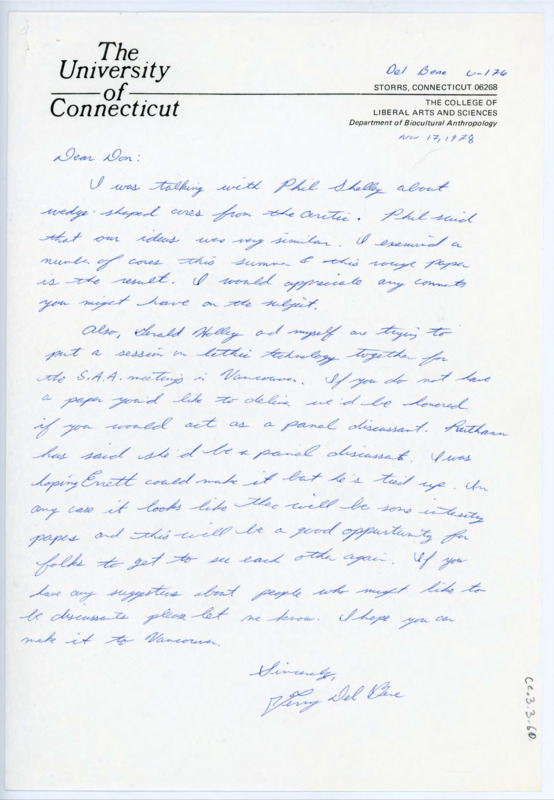 The
University
of
Connecticut
Del Bene U-176
STORRS, CONNECTICUT 06268
THE COLLEGE OF
LIBERAL ARTS AND SCIENCES
Department of Biocultural Anthropology
Nov 17, 1978
Dear Don:
I was talking with Phil Shelley about
wedge-shaped cores from the arctic. Phil said
that our ideas was very similar. I examined a
number of cores this summer & this rough paper
is the result. I would appreciate any comments
you might have on the subject.
Also, Gerald and myself are trying to
put a session on lithic technology together for
the S.A.A. meetings in Vancouver. If you do not have
a paper you'd like to deliver we'd be honored
if you would act as a panel discussant. Ruthann
has said she'd be a panel discussant. I was
hoping Errett could make it but he's tied up. In
any case it looks like there will be some interesting
papers and this will be a good opportunity for
folks to get to see each other again. If you
have any suggestions about people who might like to
be discussants please let me know. I hope you can
make it to Vancouver.
Sincerely,
Terry Del Bene
CC.3.3.60